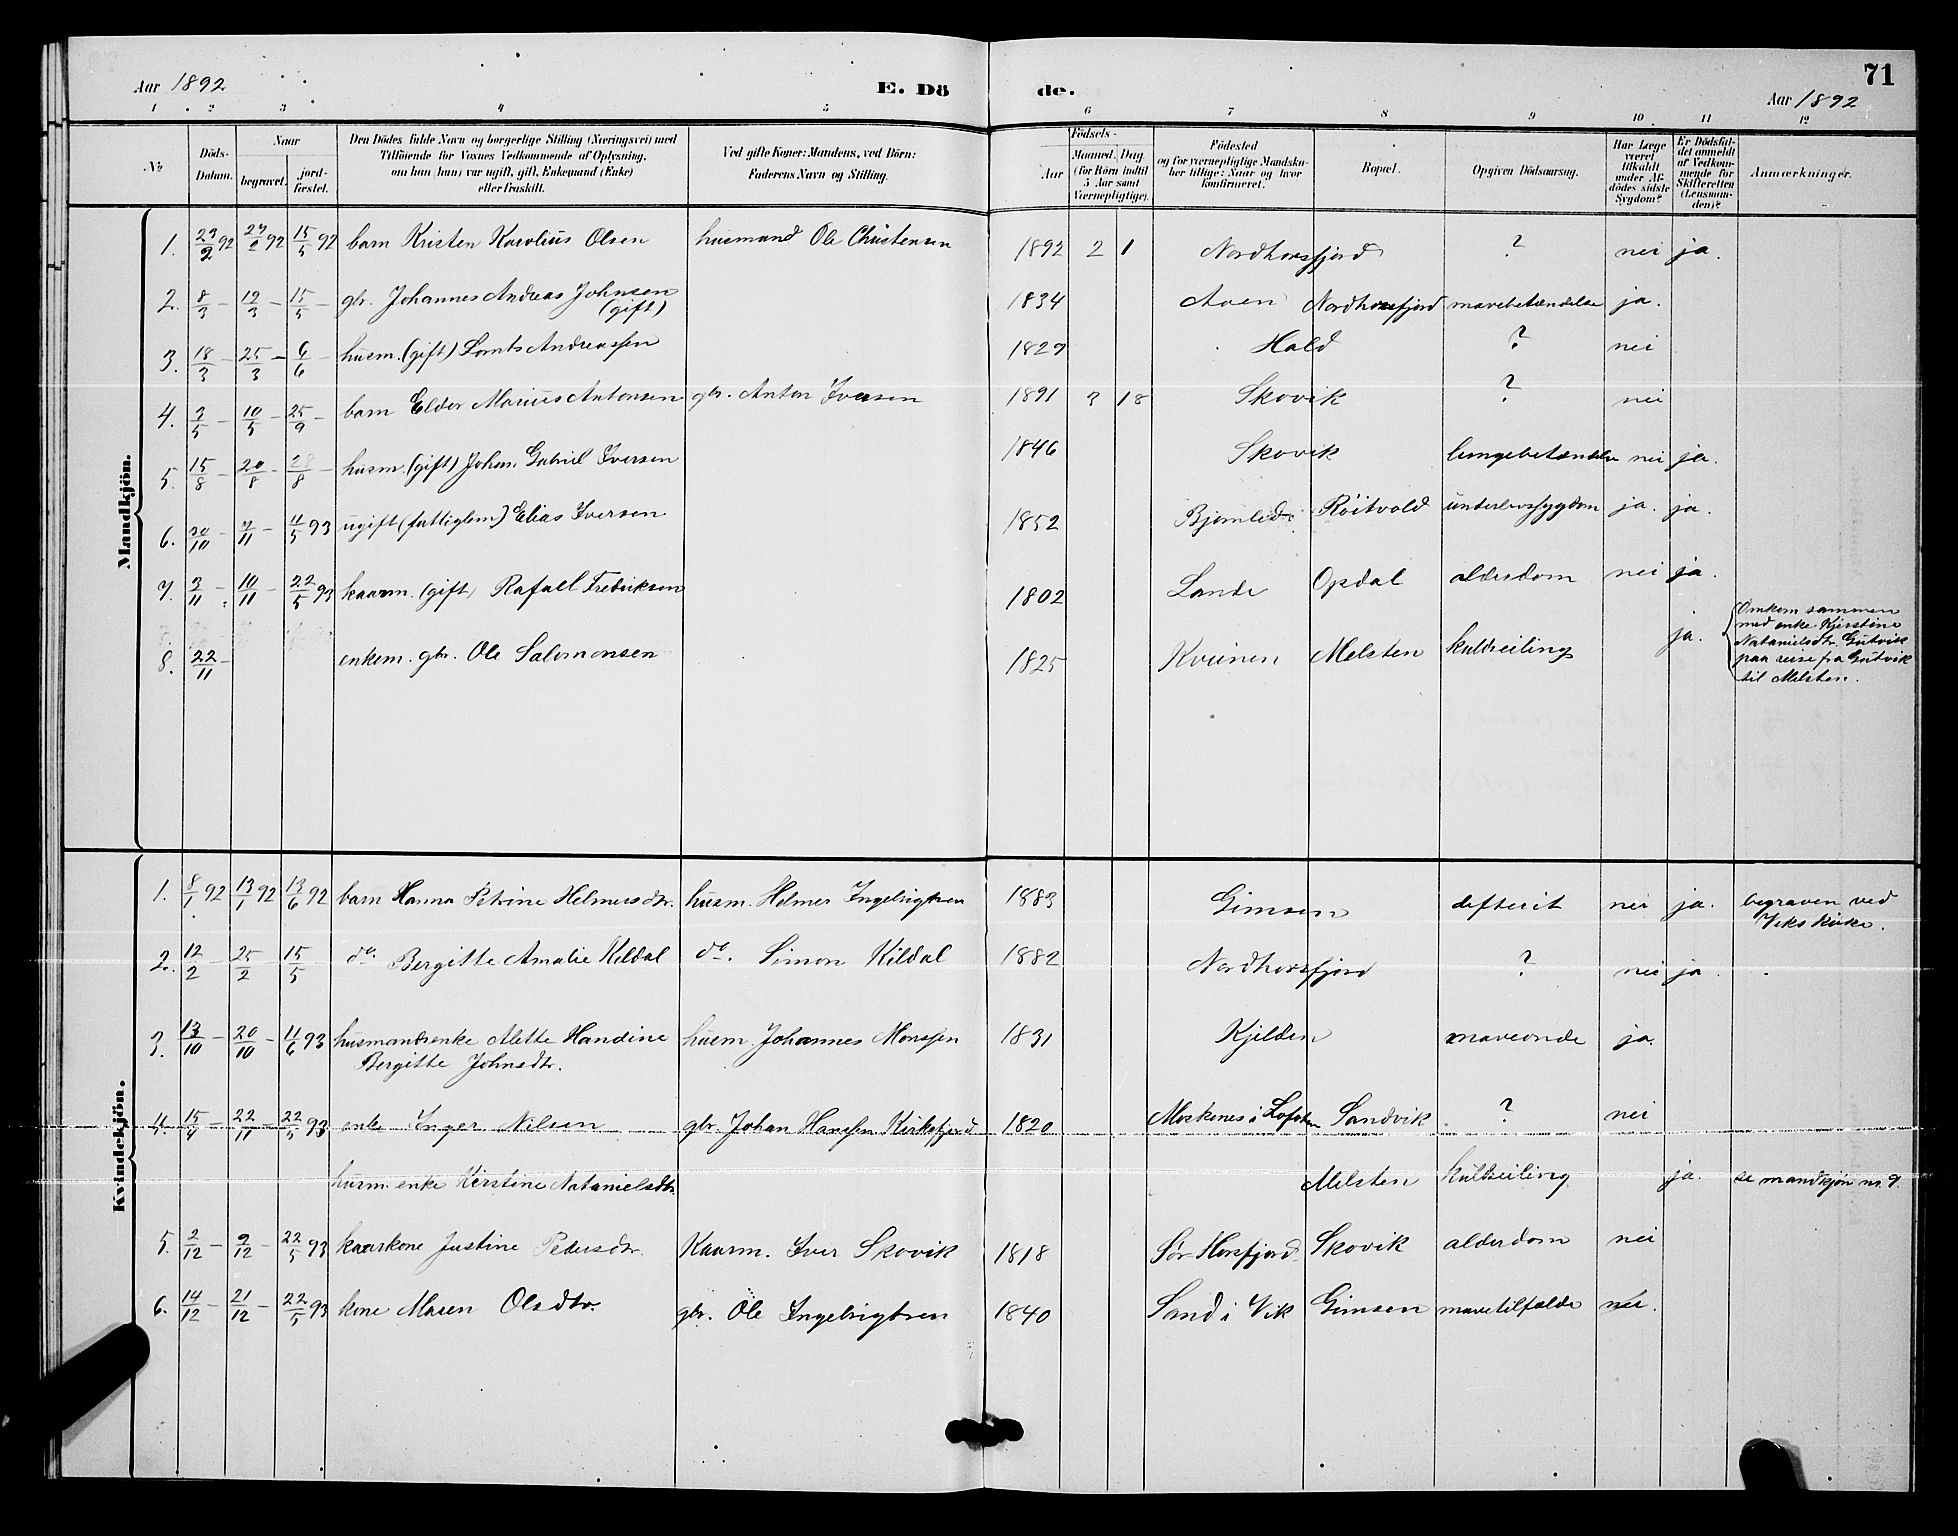 71
Aar 1892 E. Dö de. Aar 1892
1 2 3 4 5 6 7 8 9 10 11 12
No
Döds-Datum.
Naar
begravet.
jordfæstet.
Den Dödes fulde Navn og borgerlige Stilling (Næringsvei) med
Tilföiende for Voxnes Vedkommende af Oplysning,
om han (hun) var ugift, gift, Enkemand (Enke)
eller fraskilt.
Ved gifte Koner: Mandens, ved Börn:
Faderens Navn og Stilling.
Födsels-
Aar
Maaned. Dag.
(for Börn indtil
5 Aar samt
Værnepligtige).
Födested
og for værnepligtige Mandska-
ber tillige: Naar og hvor
konfirmeret.
Bopæl.
Opgiven Dödsaarsag.
Har Læge
været
tilkaldt
under Af-
dödes sidste
Sygdom?
Er Dödsfal-
det anmeldt
af Vedkom-
mende for
Skifteretten
(Lensman-
den)?
Anmærkninger.
Mandkjön.
1. 23/2 92 27/2 92 15/5 92 barn Kristen Karolius Olsen husmand Ole Christensen 1892 2 1 Nordhorsfjord ? nei ja.
2. 8/3 – 19/3 – 15/5 – gbr. Johannes Andreas Johnsen (gift) 1834 Aven Nordhorsfjord mavebetændelse ja.
3. 18/3 – 25/3 – 6/6 husm. (gift) Lornts Andreassen 1829 Hald ? nei
4. 3/5 – 10/5 – 25/9 – barn Eldor Marius Antonsen gbr. Anton Iversen 1891 3 18 Skovik ? nei
5. 15/8 – 20/8 – 28/8 husm. (gift) Johan Gabriel Iversen 1846 Skovik lungebetændelse nei ja.
6. 30/10 – 7/11 – 11/5 93 ugift (fattiglem) Elias Iversen 1852 Röitvold underlivssygdom ja. ja.
7. 3/11 – 10/11 – 22/5 93 kaarm. (gift) Rafael Fredriksen 1802 Lande Opdal alderdom nei ja.
8. 22/11 – enkem. gbr. Ole Salomonsen 1825 Kvinen Melsten kuldseiling ja.
Omkom sammen
med enke Kjerstine
Natanielsdtr. Gutvik
paa reise fra Gutvik
til Melsten.
Kvindekjön.
1. 8/1 92 13/1 92 13/6 92 barn Hanna Petrine Helmersdtr. husm. Helmer Ingebrigtsen 1883 Gimsen defterit nei ja. begraven ved
Viks kirke.
2. 12/2 – 25/2 – 15/5 do. Bergitte Amalie Kildal do. Simon Kildal 1882 Nordhorsfjord ? nei ja
3. 13/10 – 20/10 – 11/6 93 husmandsenke Alette Handine husm. Johannes Monssen 1831 Kjelden maveonde ja.
Bergitte Johnsdtr.
4. 15/4 – 22/11 – 22/5 93 enke Inger Nilsen gbr. Johan Hanssen Kirkefjord 1820 Moskenes i Lofoten Sandvik ? nei
husm. enke Kirstine Natanielsdtr. Melsten kuldseiling ja. se mandkjön nr. 9.
5. 2/12 – 9/12 – 22/5 93 kaarkone Justine Pedersdtr. Kaarm. Iver Skovik 1818 Sör Horsfjord Skovik alderdom nei
6. 14/12 – 21/12 – 22/5 93 kone Maren Olsdtr. gbr. Ole Ingebrigtsen 1840 Sand i Vik Gimsen mavetilfælde nei.